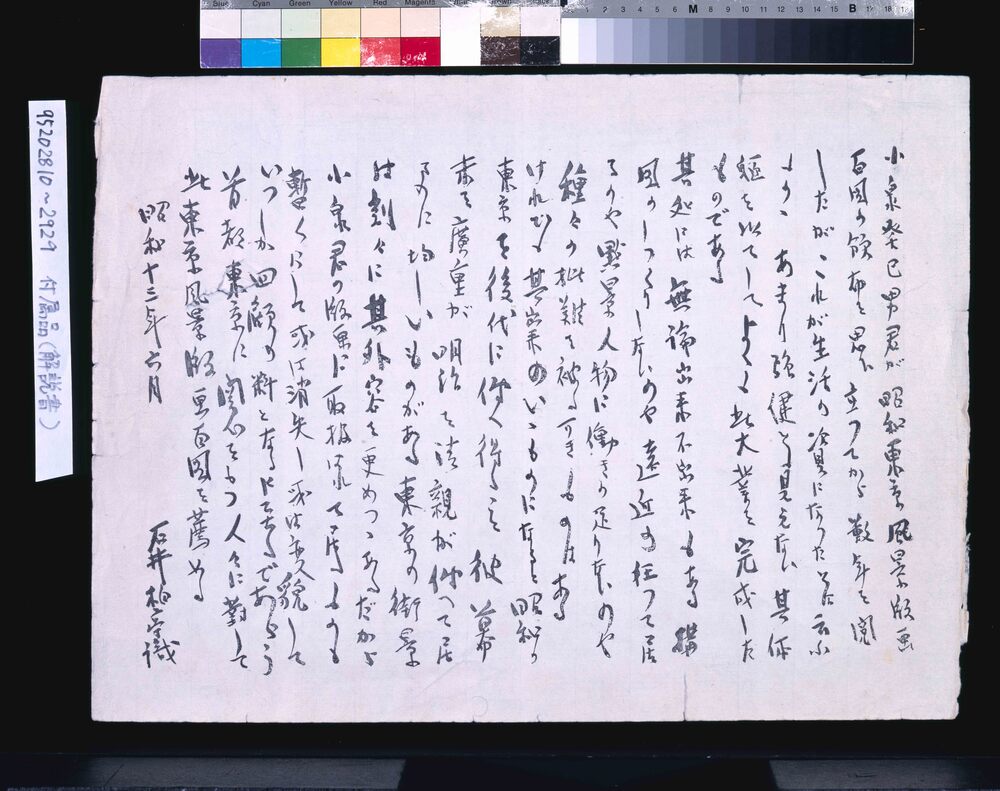 小泉癸巳男君が昭和東京風景版画
百図の頒布を思ひ立つてから数年を閲
したがこれが生活の資になつたとは云ふ
ものゝあまり強健とも見えない其体
躯を以てしてよくも此大業を完成した
ものである
其処には無論出来不出来もある構
図のしつくりしないのや遠近の狂つて居
るのや點景人物に働きの足りないのや
種々の批難を被る可きものはある
けれども其出来のいゝものになると昭和の
東京を後代に伝へ得ること彼幕
末を廣重が明治を清親が伝へて居
るのに均しいものがある東京の街景
は刻々に其外容を更めつゝあるだから
小泉君の版画に取扱はれて居るものも
暫くにして或は消失し或は変貌して
いつしか回顧の料となるに至るであらう
首都東京に関心をもつ人々に対して
此東京風景版画百図を薦める
昭和十三年六月
石井柏亭識
95202810~2929 付属品(解説書)
Blue Cyan Green Yellow Red Magenta
2 3 4 5 6 M 8 9 10 11 12 13 14 15 B 17 18